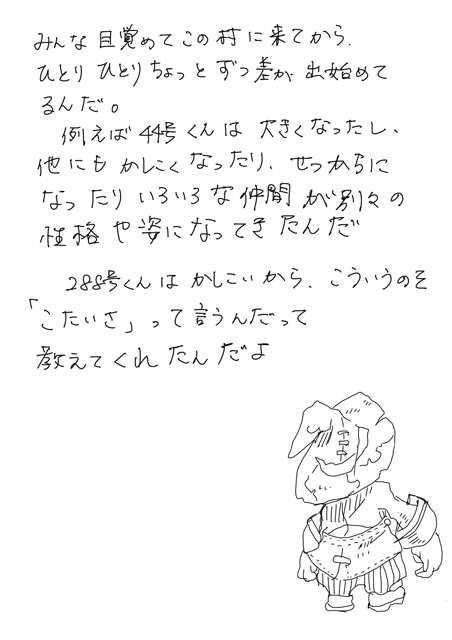 みんな目覚めてこの村に来てから、
ひとりひとりちょっとずつ差が出始めて
るんだ。
例えば44号くんは大きくなったし、
他にもかしこくなったり、せっかちに
なったりいろいろな仲間が別々の
性格や姿になってきたんだ
288号くんはかしこいから、こういうのを
「こたいさ」って言うんだって
教えてくれたんだよ